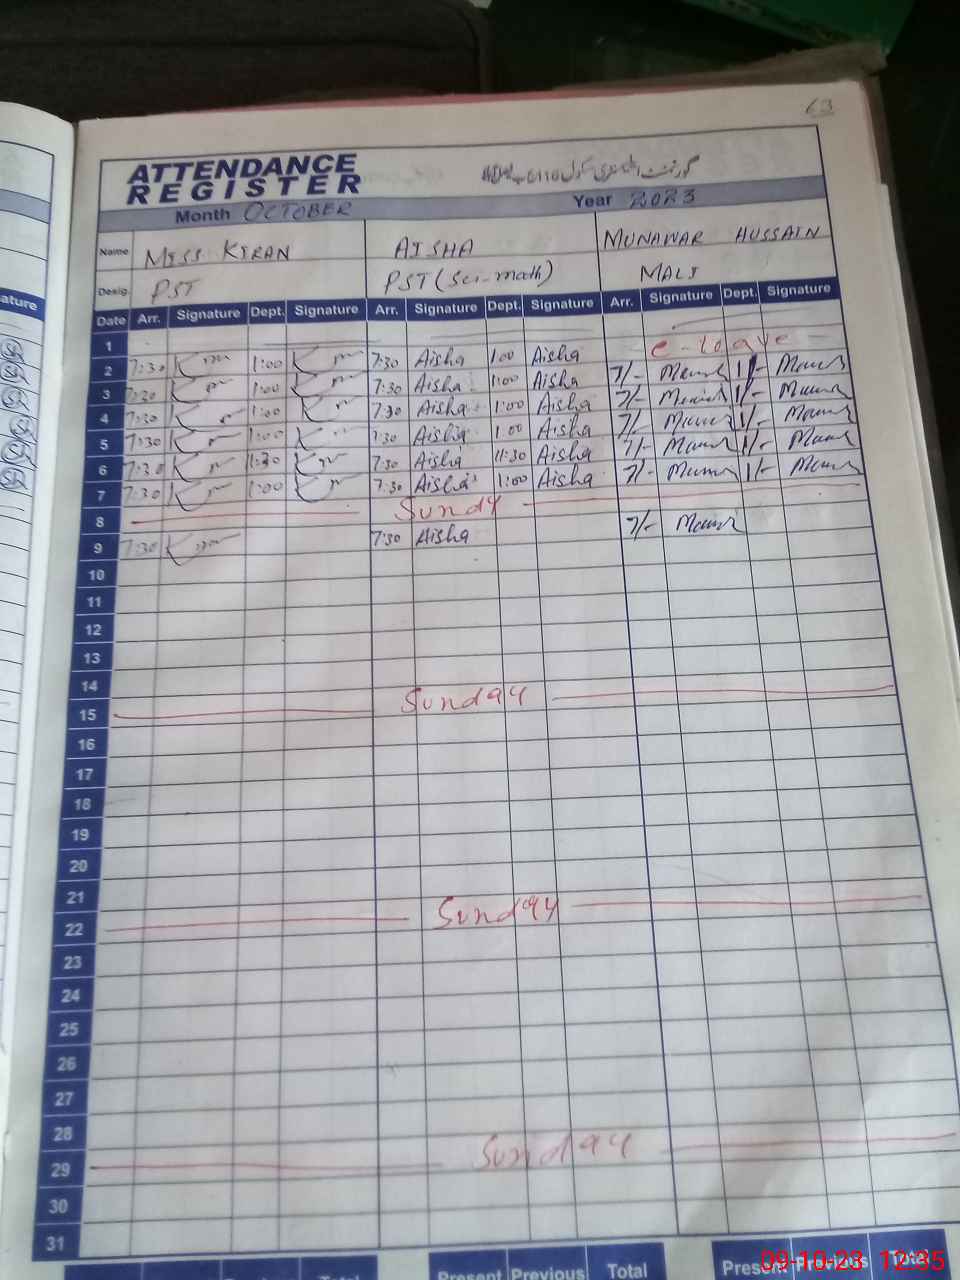 63
ATTENDANCE
REGISTER
Month OCTOBER Year 2023
Name MISS KIRAN AISHA MUNAWAR HUSSAIN
Desig. PST PST (Sci-math) MALI
Date Arr. Signature Dept. Signature Arr. Signature Dept. Signature Arr. Signature Dept. Signature
1
2 7:30 1:00 7:30 Aisha 1:00 Aisha e-leave
3 7:30 1:00 7:30 Aisha 1:00 Aisha 7/- 1/-
4 7:30 1:00 7:30 Aisha 1:00 Aisha 7/- 1/-
5 7:30 1:00 7:30 Aisha 1:00 Aisha 7/- 1/-
6 7:30 11:30 7:30 Aisha 11:30 Aisha 7/- 1/-
7 7:30 1:00 7:30 Aisha 1:00 Aisha 7/- 1/-
8 Sundy
9 7:30 7:30 Aisha 7/-
10
11
12
13
14
15 Sunday
16
17
18
19
20
21
22 Sunday
23
24
25
26
27
28
29 Sunday
30
31
Total Present Previous Total Present Previous Total
09-10-23 12:35
ature